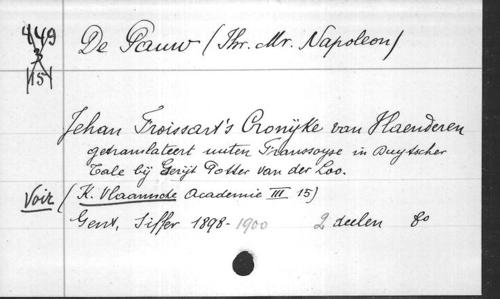 449 De Pauw (Thr. Mr. Napoleon)
3
15
Jehan Froissart's Cronyke van Vlaenderen
getranslateert uuten Franssoyse in Duytscher
Tale bij Gerijt Potter van der Loo.
Voir (K. Vlaamsche Academie III 15)
Gent, Siffer 1898-1900 2 deelen 8o